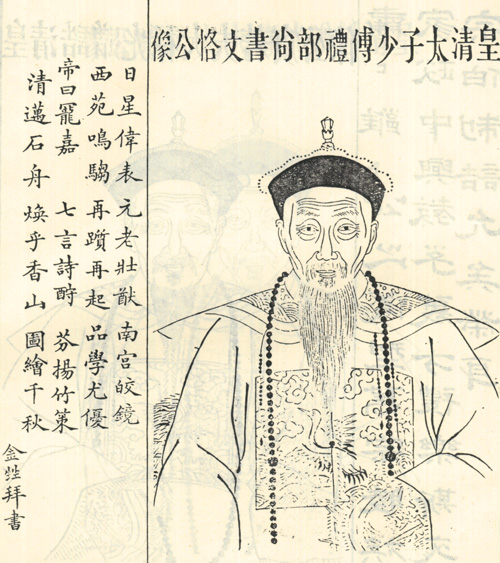 皇清太子少傅禮部尚書文恪公像
日星偉表 元老壯猷 南宮皎鏡
西苑鳴騶 再躓再起 品學尤優
帝曰寵嘉 七言詩酧 芬揚竹策
清邁石舟 煥乎香山 圖繪千秋
金甡拜書